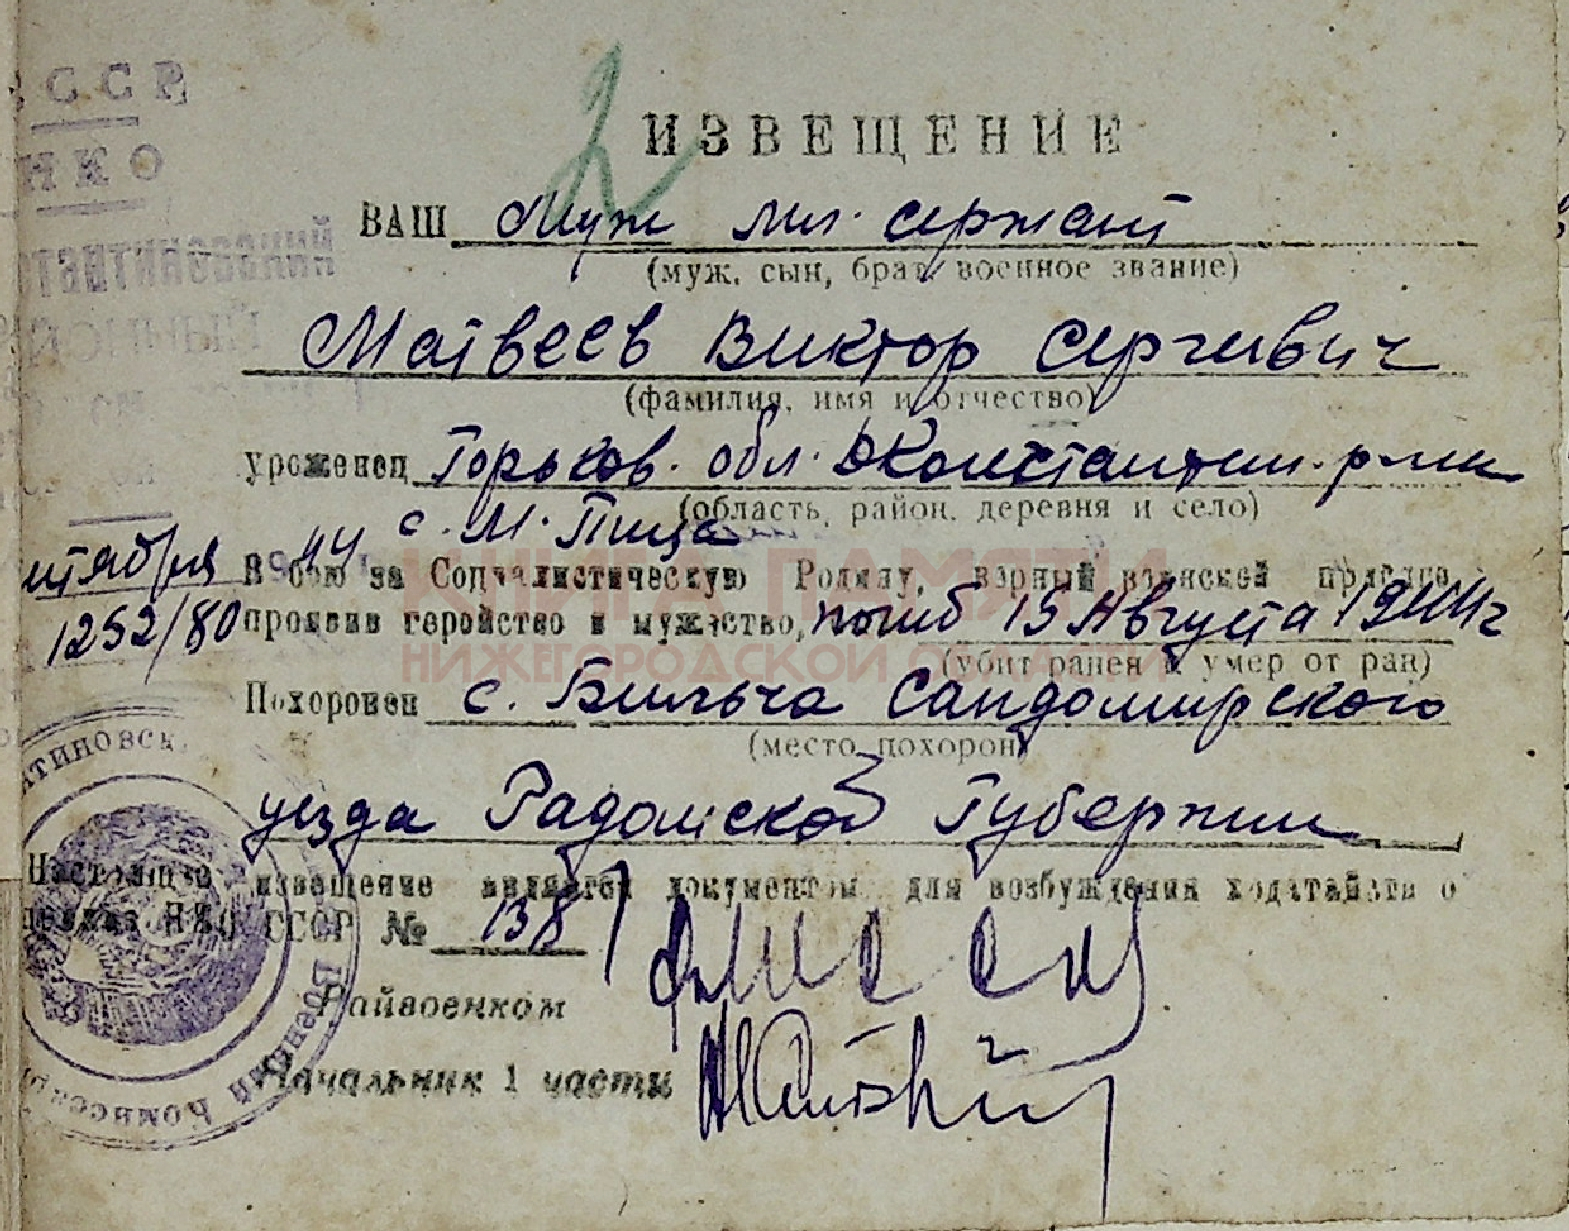 СССР
НКО
ИЗВЕЩЕНИЕ
ВАШ Муж мл. сержант
(муж, сын, брат, военное звание)
Матвеев Виктор Сергеевич
(фамилия, имя и отчество)
уроженец Горьков. обл. Константин. р-на
(область, район, деревня и село)
с. М. Пица
В бою за Социалистическую Родину, верный воинской присяге,
проявив геройство и мужество, погиб 15 Августа 1944 г
1252/80
(убит ранен и умер от ран)
Похоронен с. Бильча Сандомирского
(место похорон)
уезда Радомской Губернии
Настоящее извещение является документом для возбуждения ходатайств о
приказ НКО СССР № 138
Райвоенком
Начальник 1 части
Военный Комисса
КНИГА ПАМЯТИ
НИЖЕГОРОДСКОЙ ОБЛАСТИ